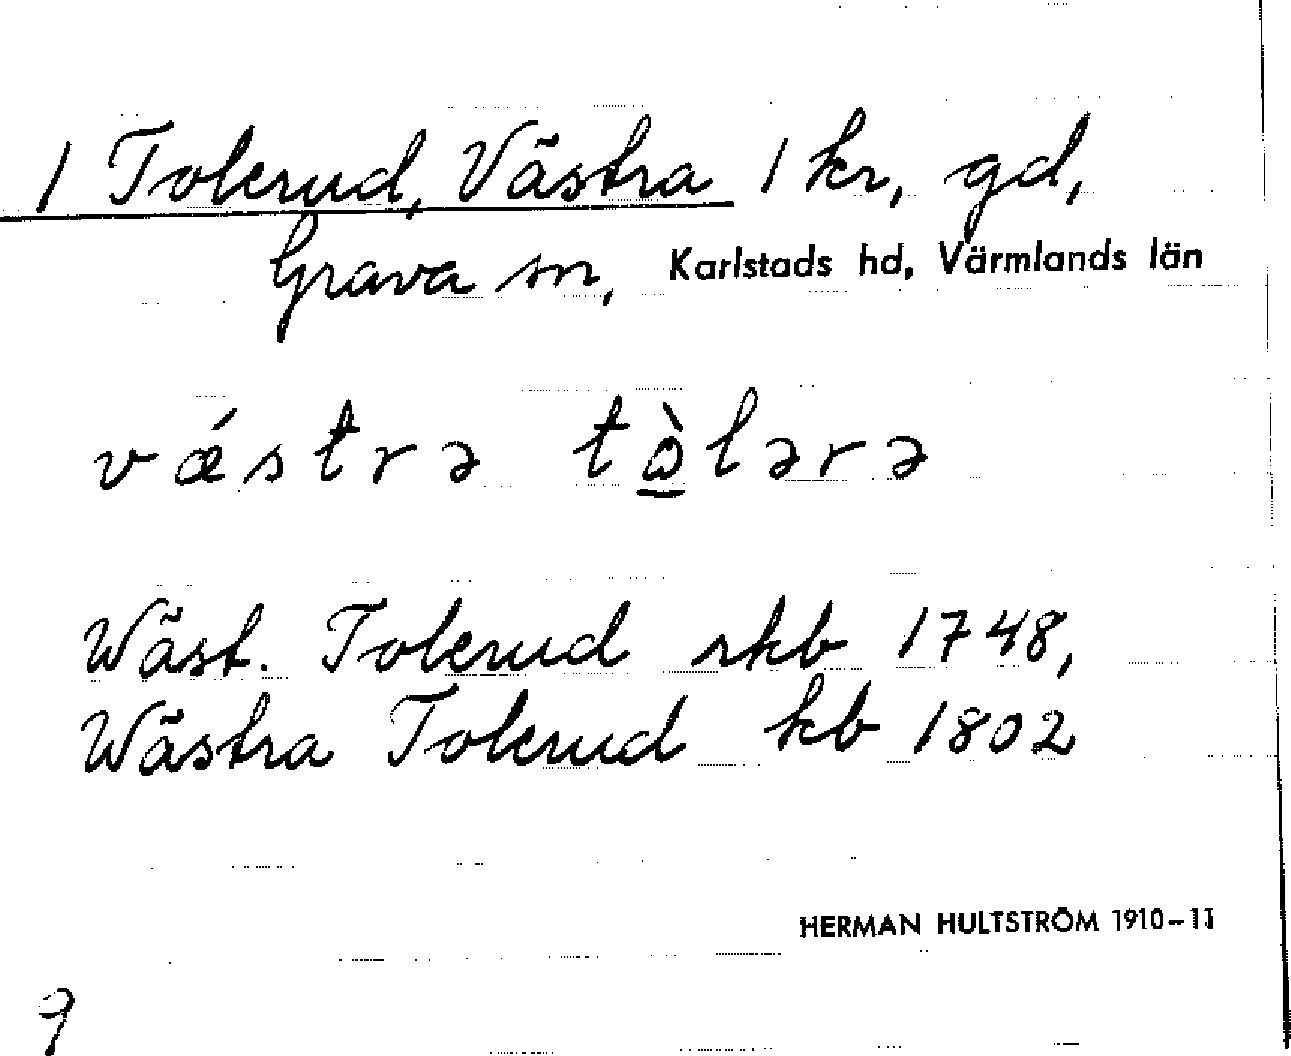 / Tolerud, Västra / kr, gd,
Grava sn, Karlstads hd, Värmlands län
vǽstrə tòlərə
Wäst. Tolerud skb 1748,
Wästra Tolerud kb 1802
HERMAN HULTSTRÖM 1910–11
9